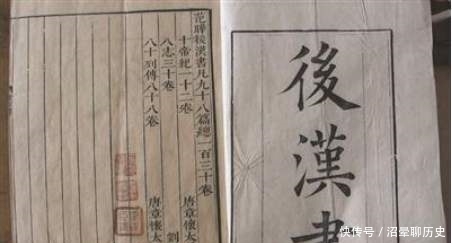 後漢書
范曄後漢書凡九十八篇總一百三十卷
十帝紀一十二卷 唐章懷太
八志三十卷 劉
八十列傳八十八卷 唐章懷太
快传号/沼晕聊历史